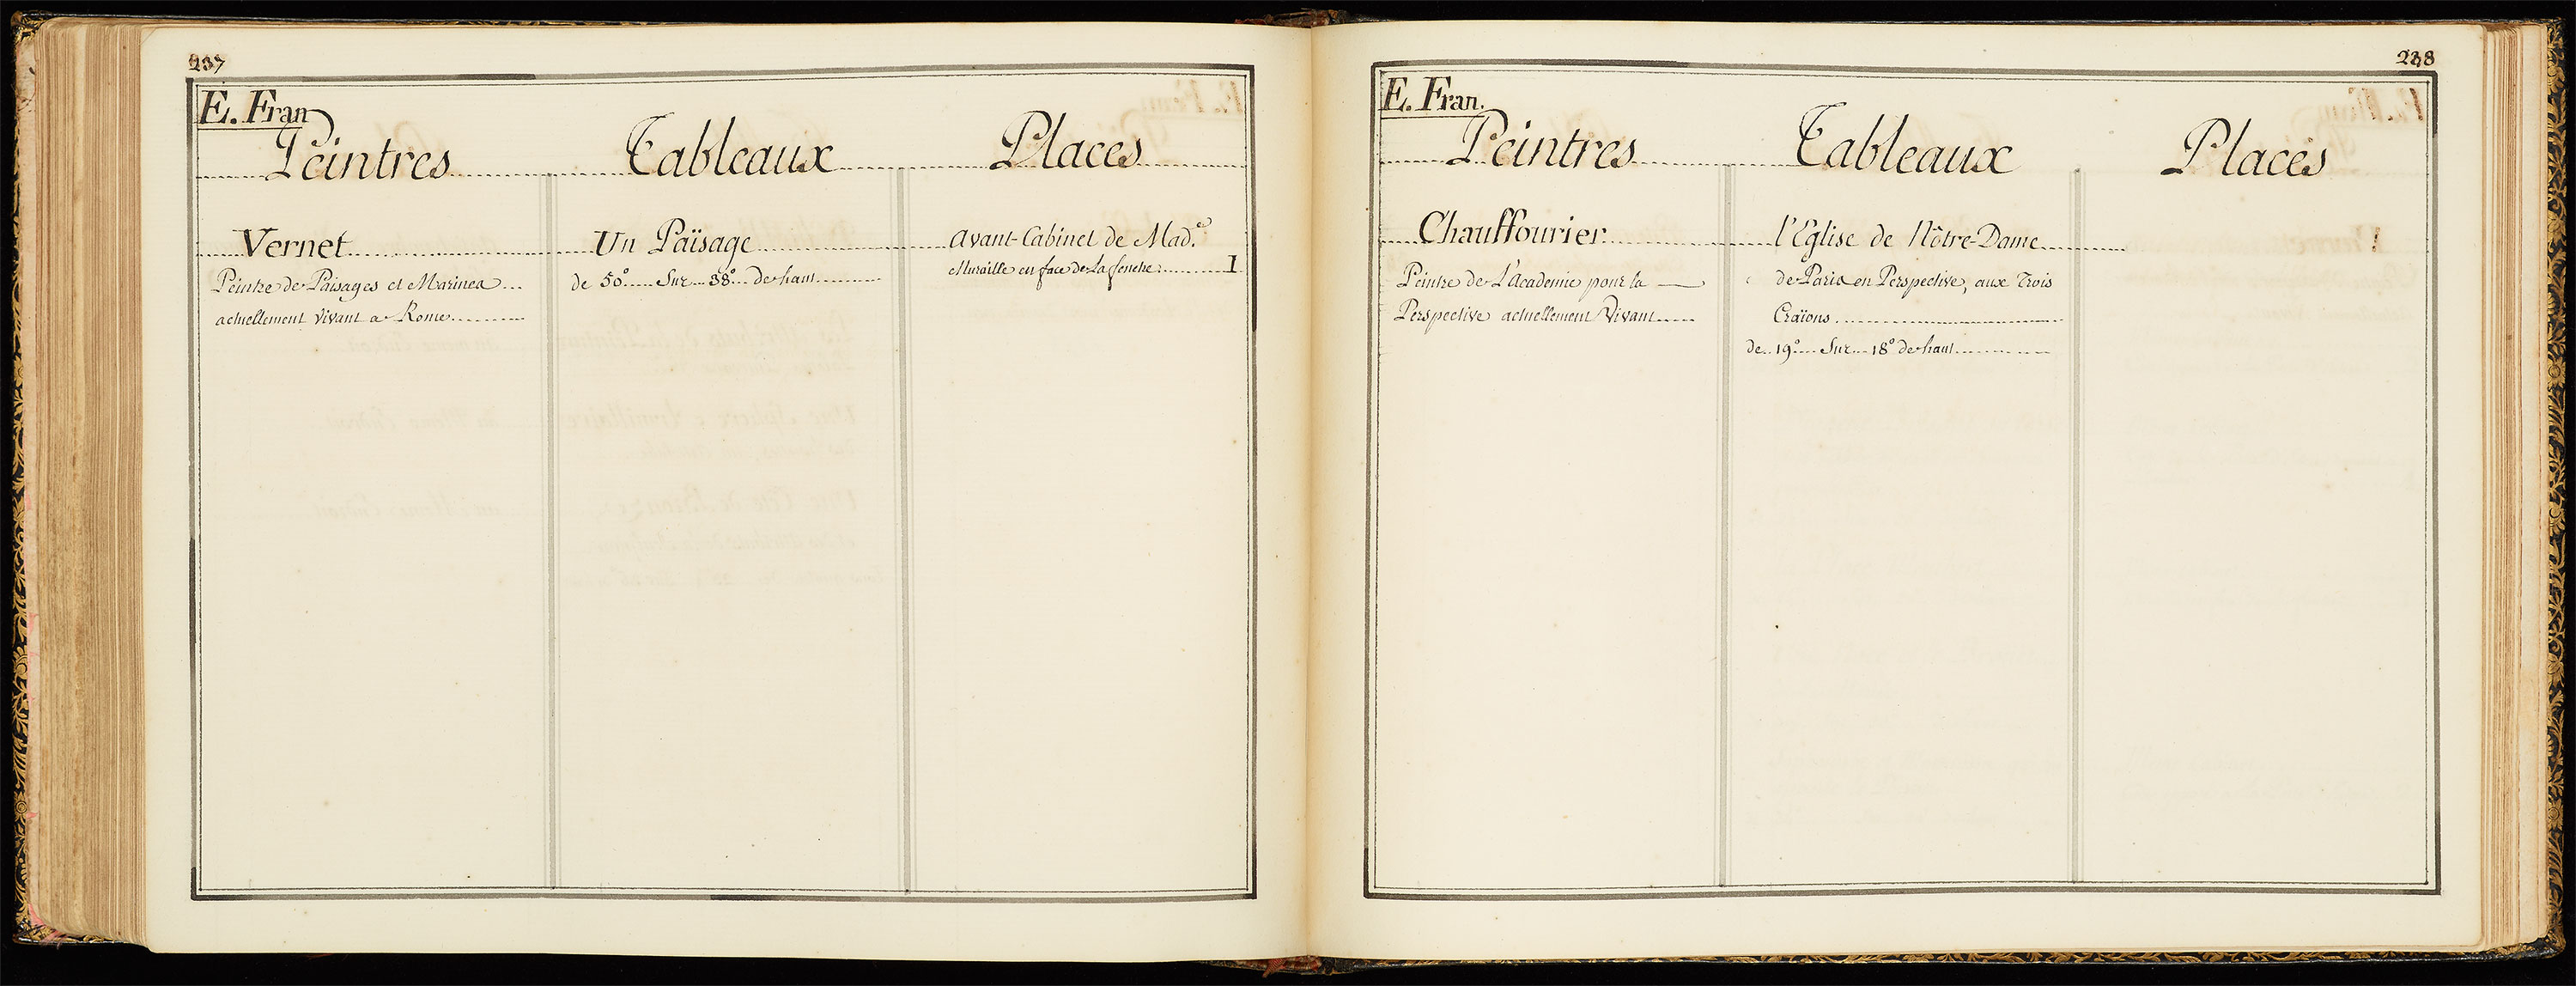 237
E. Fran
Peintres Tableaux Places
Vernet Un Païsage Avant-Cabinet de Mad.e
Peintre de Païsages et Marines de 50° Sur 38° de haut Muraille en face de La fenetre 1
actuellement Vivant a Rome
238
E. Fran.
Peintres Tableaux Places
Chauffourier l'Eglise de Nôtre-Dame
Peintre de L'Academie pour la de Paris en Perspective, aux Trois
Perspective actuellement Vivant Craïons
de 19° Sur 18° de haut